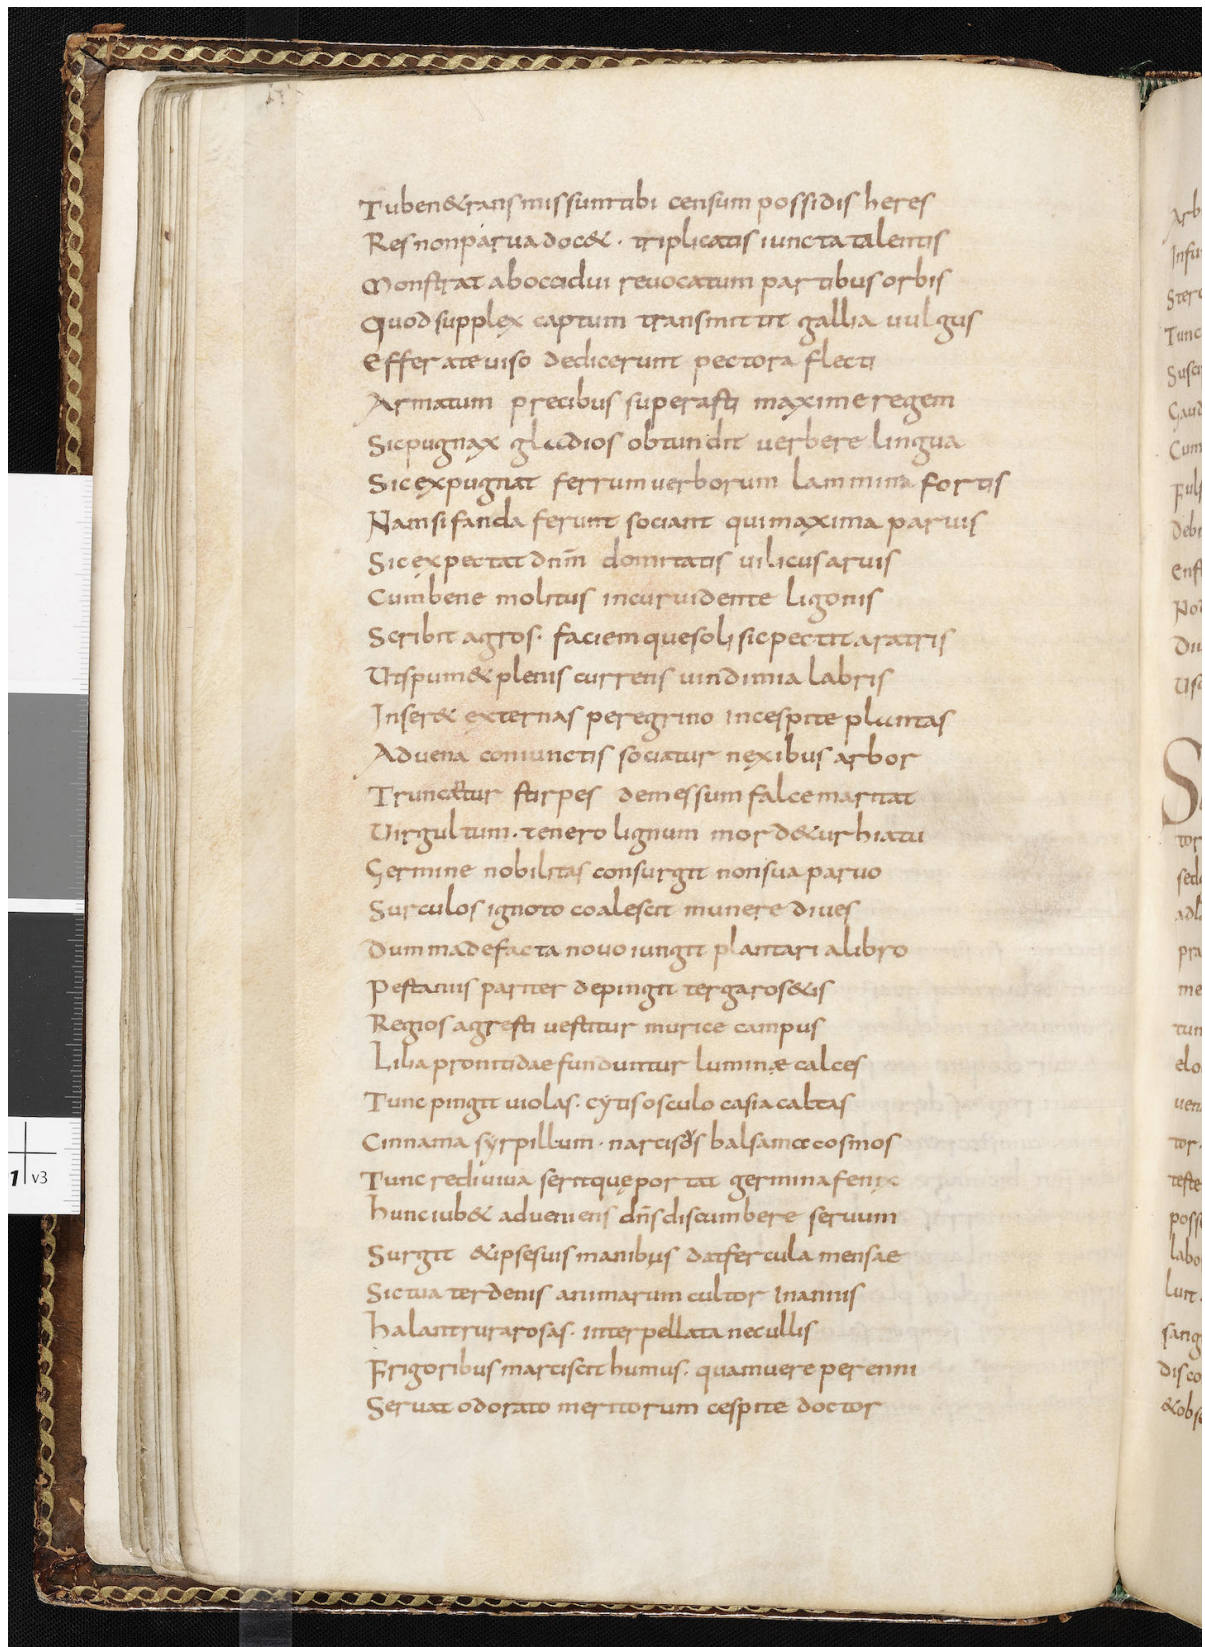 Tuben&ransmissumtibi censum possidis heres
Res nonparuadoc&· triplicatis iunctatalentis
Monstrat aboccidui reuocatum partibus orbis
Quod supplex captum transmittit gallia uulgus
Efferateuiso dedicerunt pectora flecti
Armatum precibus superasti maxime regem
Sicpugnax gladios obtundit uerbere lingua
Sicexpugnat ferrumuerborum lammina fortis
Namsifanda ferunt sociant quimaxima paruis
Sicexpectat dnm̄ domitatis uilicusaruis
Cumbene molitus incuruidente ligonis
Scribit agros· faciemquesoli sicpectitaratris
Utspum& plenis currens uindimia labris
Inser& externas peregrino incespite plantas
Aduena coniunctis sociatur nexibus arbor
Truncatur stirpes demessum falcemaritat
Uirgultum· tenero lignum mord&ur hiatu
Germine nobilitas consurgit nonsua paruo
Surculos ignoto coalescit munere diues
Dummadefacta nouo iungit plantari alibro
Pestanis pariter depingit tergaros&is
Regios agresti uestitur murice campus
Lilia pronitidaefunduntur luminæ calces
Tunc pingit uiolas· cytisosculo casia caltas
Cinnama syrpillum· narcisos balsamæcosmos
Tunc rediuiua seritqueportat germinafenix
hunciub& adueniens dn̄s discumbere seruum
Surgit &ipsesuis manibus datfercula mensae
Sictua terdenis animarum cultor inannis
halantrurarosas· interpellata necullis
Frigoribus marciscit humus· quamuere perenni
Seruat odorato meritorum cespite doctor